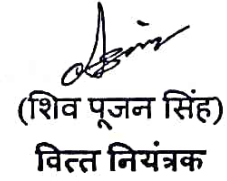 (शिव पूजन सिंह)
वित्त नियंत्रक